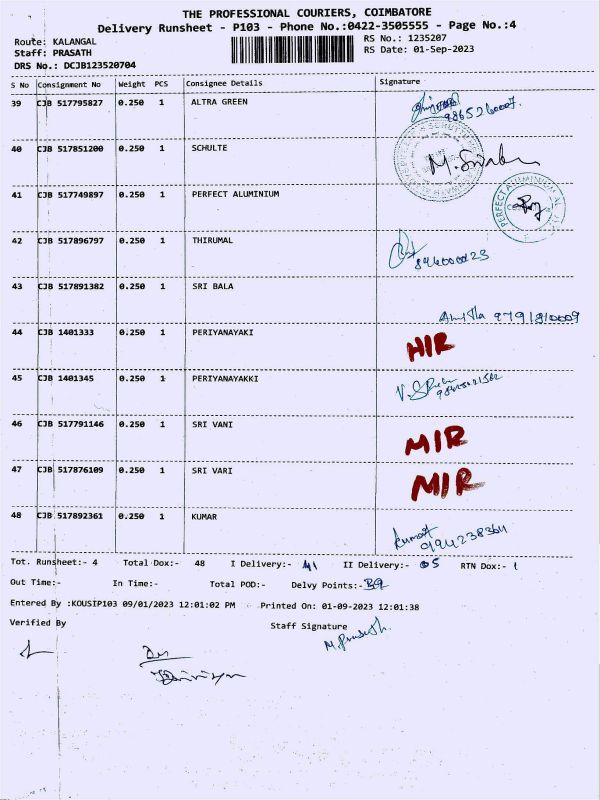 THE PROFESSIONAL COURIERS, COIMBATORE
Delivery Runsheet - P103 - Phone No.:0422-3505555 - Page No.:4
Route: KALANGAL
RS No.: 1235207
Staff: PRASATH
RS Date: 01-Sep-2023
DRS No.: DCJB123520704
S No Consignment No Weight PCS Consignee Details Signature
39 CJB 517795827 0.250 1 ALTRA GREEN
40 CJB 517851200 0.250 1 SCHULTE
41 CJB 517749897 0.250 1 PERFECT ALUMINIUM
PERFECT ALUMINIUM
42 CJB 517896797 0.250 1 THIRUMAL
43 CJB 517891382 0.250 1 SRI BALA
44 CJB 1401333 0.250 1 PERIYANAYAKI
45 CJB 1401345 0.250 1 PERIYANAYAKKI
46 CJB 517791146 0.250 1 SRI VANI MIR
47 CJB 517876109 0.250 1 SRI VARI MIR
48 CJB 517892361 0.250 1 KUMAR
Kumar
Tot. Runsheet:- 4 Total Dox:- 48 I Delivery:- 41 II Delivery:- 05 RTN Dox:- 1
Out Time:- In Time:- Total POD:- Delvy Points:- 39
Entered By :KOUSIP103 09/01/2023 12:01:02 PM Printed On: 01-09-2023 12:01:38
Verified By Staff Signature
M. Prasath